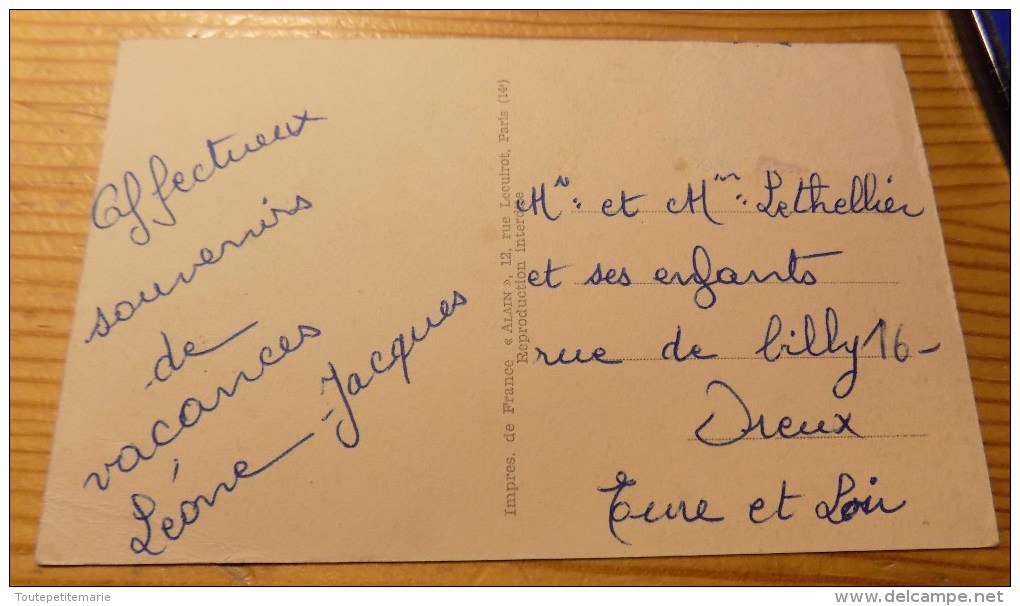 Affectueux
souvenirs
de
vacances
Léone - Jacques
Impres. de France « ALAIN », 12, rue Lecuirot, Paris (14e)
Reproduction interdite
Mr et Mme Lethellier
et ses enfants
rue de billy 16 -
Dreux
Eure et Loir
Toutepetitemarie
delcampe.net